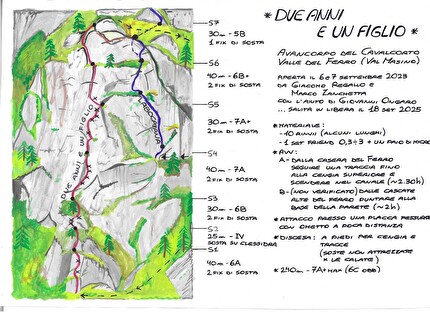 * DUE ANNI
E UN FIGLIO *
AVANCORPO DEL CAVALCORTO
VALLE DEL FERRO (VAL MASINO)
APERTA IL 6 e 7 SETTEMBRE 2023
DA GIACOMO REGALLO E
MARCO ZANCHETTA
CON L'AIUTO DI GIOVANNI ONGARO
... SALITA IN LIBERA IL 18 SET 2025
* MATERIALE:
-10 ANNI (ALCUNI LUNGHI)
-1 SET FRIEND 0,3÷3 + UN PAIO DI MICRO
* AVV:
A- DALLA CASERA DEL FERRO
SEGUIRE UNA TRACCIA FINO
ALLA CENGIA SUPERIORE E
SCENDERE NEL CANALE (~2.30h)
B- (NON VERIFICATO) DALLE CASCATE
ALTE DEL FERRO PUNTARE ALLA
BASE DELLA PARETE (~2h)
* ATTACCO PRESSO UNA PLACCA
CON OMETTO A POCA DISTANZA
* DISCESA: A PIEDI PER CENGIA E
TRACCE
(SOSTE NON ATTREZZATE
X LE CALATE)
* 240m - 7A+ MAX (6C OBB)
S7
30m - 5B
1 FIX DI SOSTA
S6
40m - 6B+
2 FIX DI SOSTA
S5
30m - 7A+
2 FIX DI SOSTA
S4
40m - 7A
2 FIX DI SOSTA
S3
30m - 6B
2 FIX DI SOSTA
S2
25m - IV
SOSTA SU CLESSIDRA
S1
40m - 6A
2 FIX DI SOSTA
DUE ANNI E UN FIGLIO